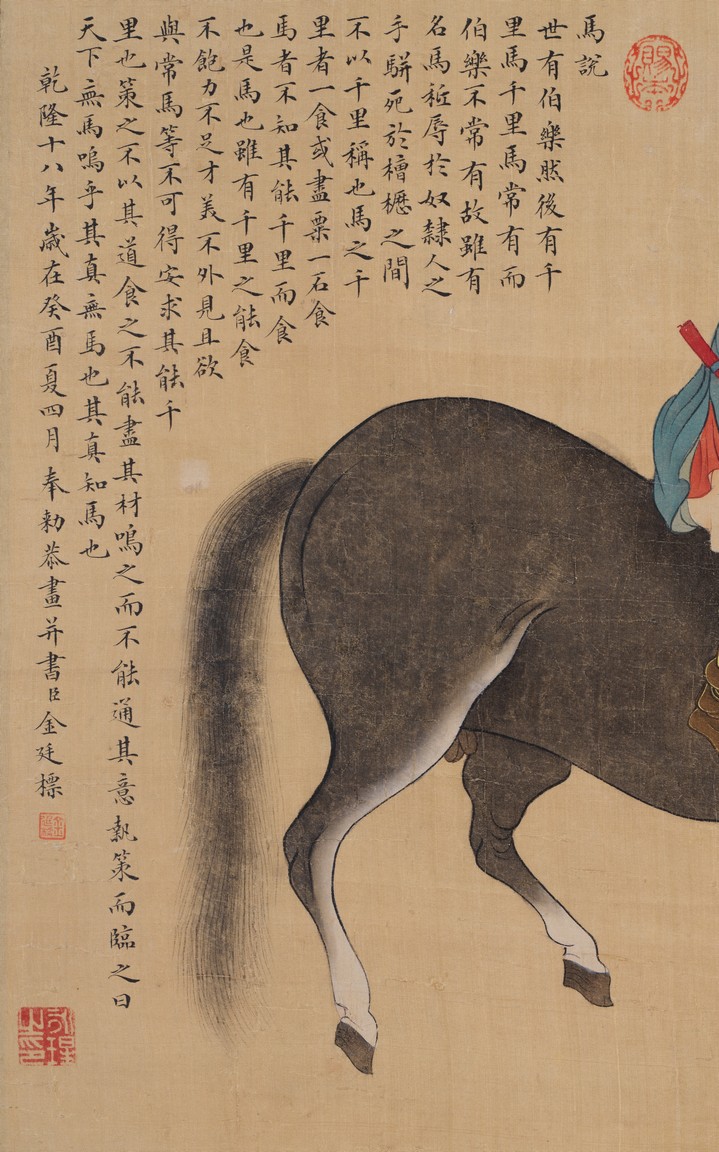 馬說
世有伯樂然後有千
里馬千里馬常有而
伯樂不常有故雖有
名馬秪辱於奴隸人之
手駢死於槽櫪之間
不以千里稱也馬之千
里者一食或盡粟一石食
馬者不知其能千里而食
也是馬也雖有千里之能食
不飽力不足才美不外見且欲
與常馬等不可得安求其能千
里也策之不以其道食之不能盡其材鳴之而不能通其意執策而臨之曰
天下無馬嗚乎其真無馬也其真知馬也
乾隆十八年歲在癸酉夏四月奉勅恭畫并書臣金廷標